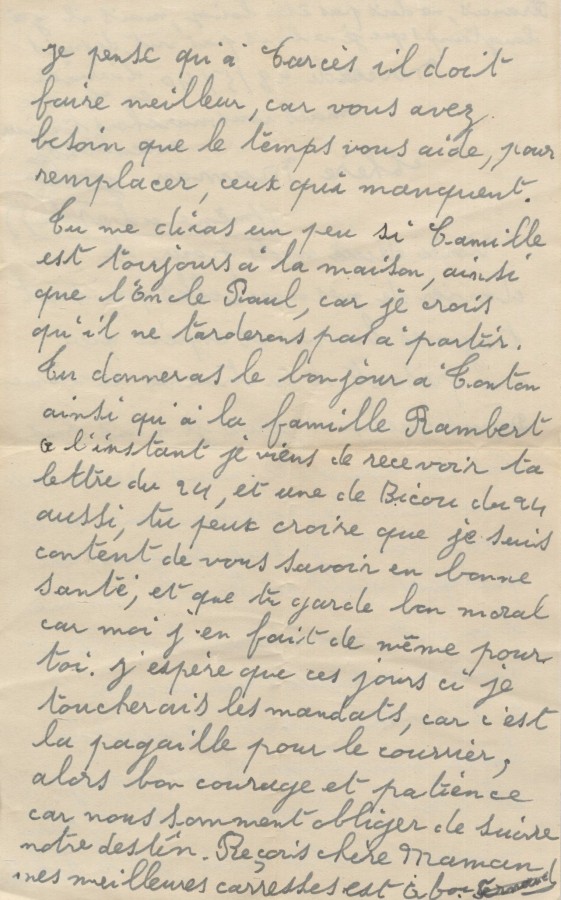 je pense qu'à Carcès il doit
faire meilleur, car vous avez
besoin que le temps vous aide, pour
remplacer, ceux qui manquent.
Tu me diras un peu si Camille
est toujours à la maison, ainsi
que l'Oncle Paul, car je crois
qu'il ne tarderons pas à partir.
Tu donneras le bonjour à Tonton
ainsi qu'à la famille Rambert
a l'instant je viens de recevoir ta
lettre du 24, et une de Bicou du 24
aussi, tu peux croire que je suis
content de vous savoir en bonne
santé, et que tu garde bon moral
car moi j'en fait de même pour
toi. j'espère que ces jours ci je
toucherais les mandats, car c'est
la pagaille pour le courrier,
alors bon courage et patience
car nous somment obliger de suivre
notre destin. Reçois chère Maman
mes meilleures carresses est à b